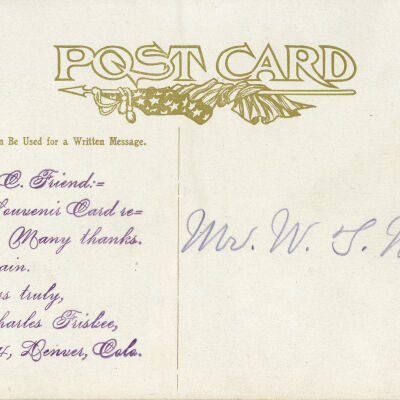 POST CARD
n Be Used for a Written Message.
C. Friend:=
Souvenir Card re=
Many thanks.
ain.
s truly,
harles Frisbee,
4, Denver, Colo.
Mr. W. S.